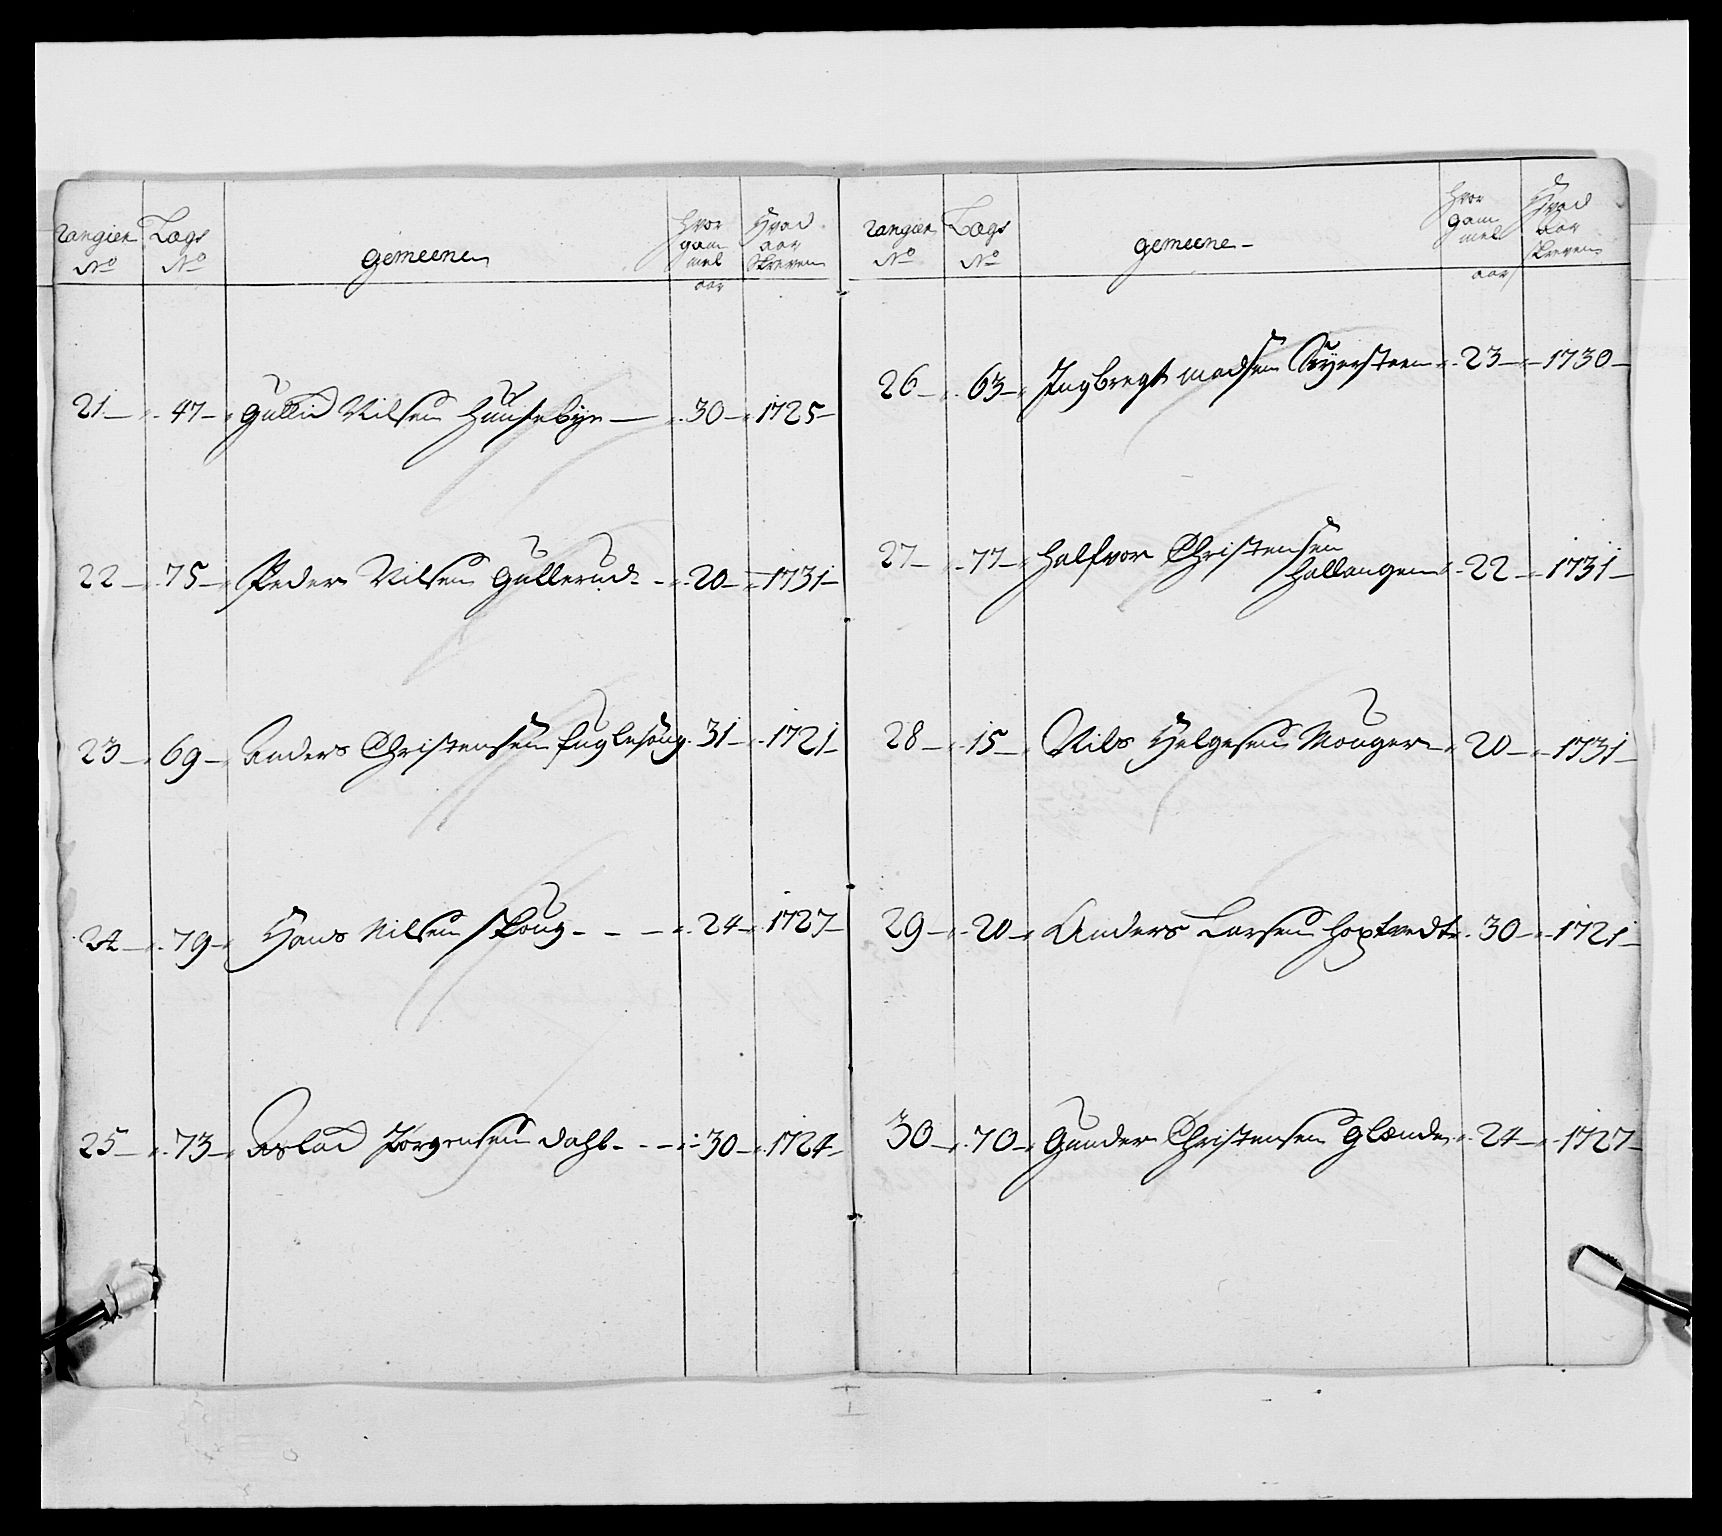 Rangien No
Lægs No
gemeene
hvor gam mel aar
Hvad aar Skreven
21 47 Gullid Nilsen Huusebÿe 30 1725
22 75 Peder Nilsen Gullerud 20 1731
23 69 Anders Christensen fuglesang 31 1721
24 79 Hans Nilsen Skoug 24 1727
25 73 Aslad Jörgensen dahl 30 1724
Rangien No
Lægs No
gemeene
hvor gam mel aar
Hvad Aar Skreven
26 63 Ingbregt madsen 23 1730
27 77 halfvor Christensen
hallangen 22 1731
28 15 Nils Helgesen Mouger 20 1731
29 20 Anders Larsen hoxtvedt 30 1721
30 70 Gunder Christensen Glænde 24 1727